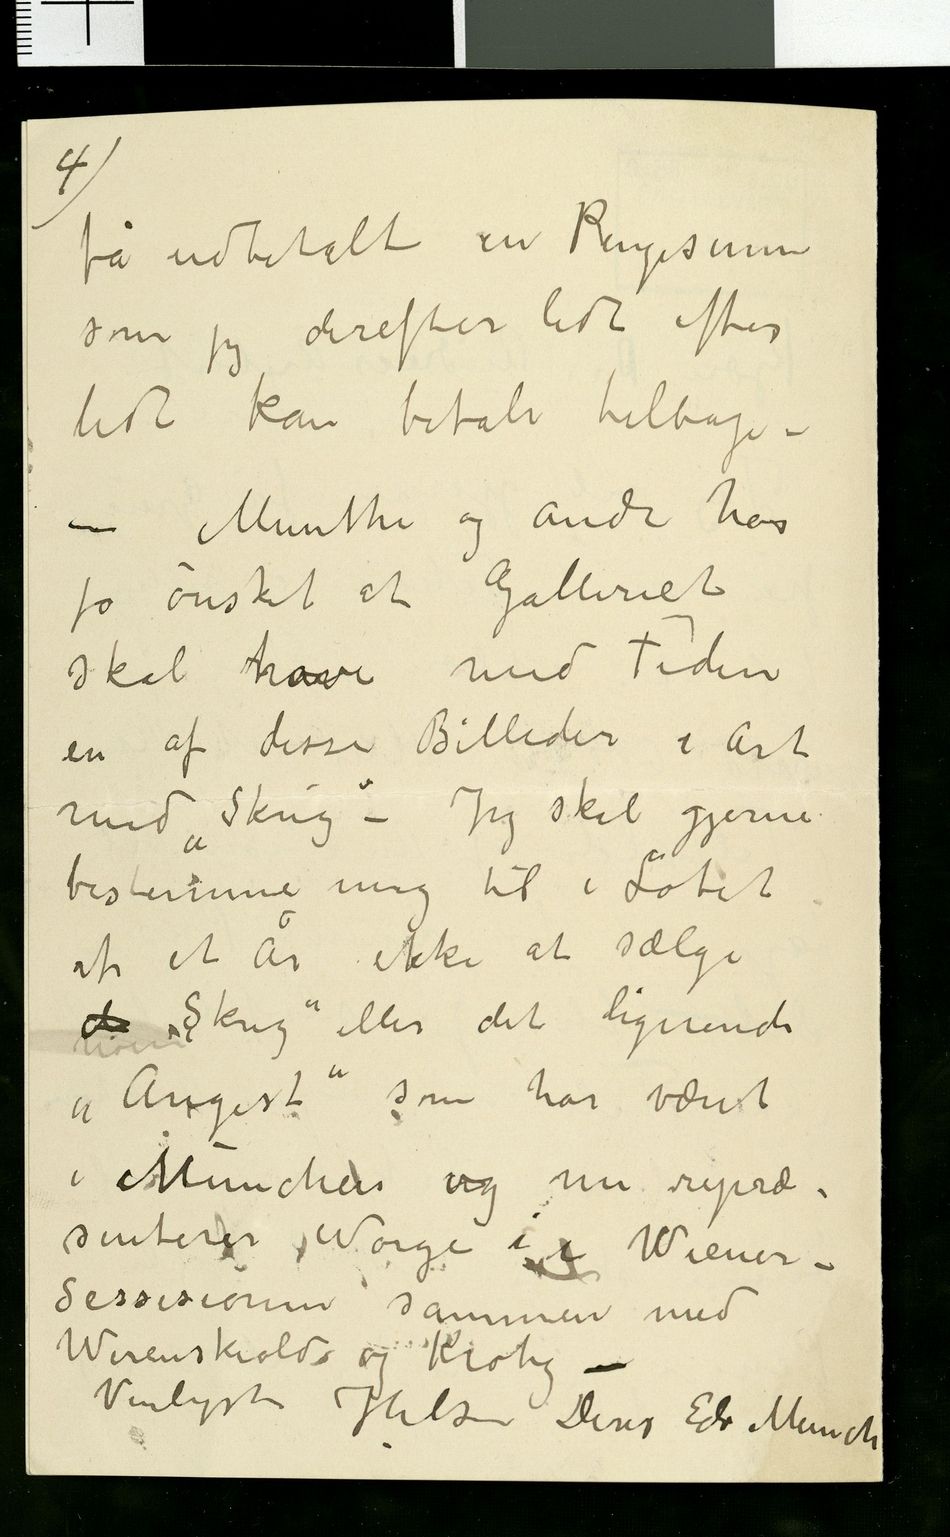 4)
få udbetalt en Pengesum
som jeg derefter lidt efter
lidt kan betale tilbage –
— Munthe og andre har
jo önsket at Galleriet
skal have med Tiden
en af disse Billeder i Art
med „Skrig“ – Jeg skal gjerne
bestemme mig til i Löbet
af et År ikke at sælge
„Skrig“ eller det lignende
„Angest“ som har været
i München og nu repræ-
senterer Norge i Wiener-
Sessisionen sammen med
Werenskiold og Krohg —
Venligst Hilsen Deres Edv Munch